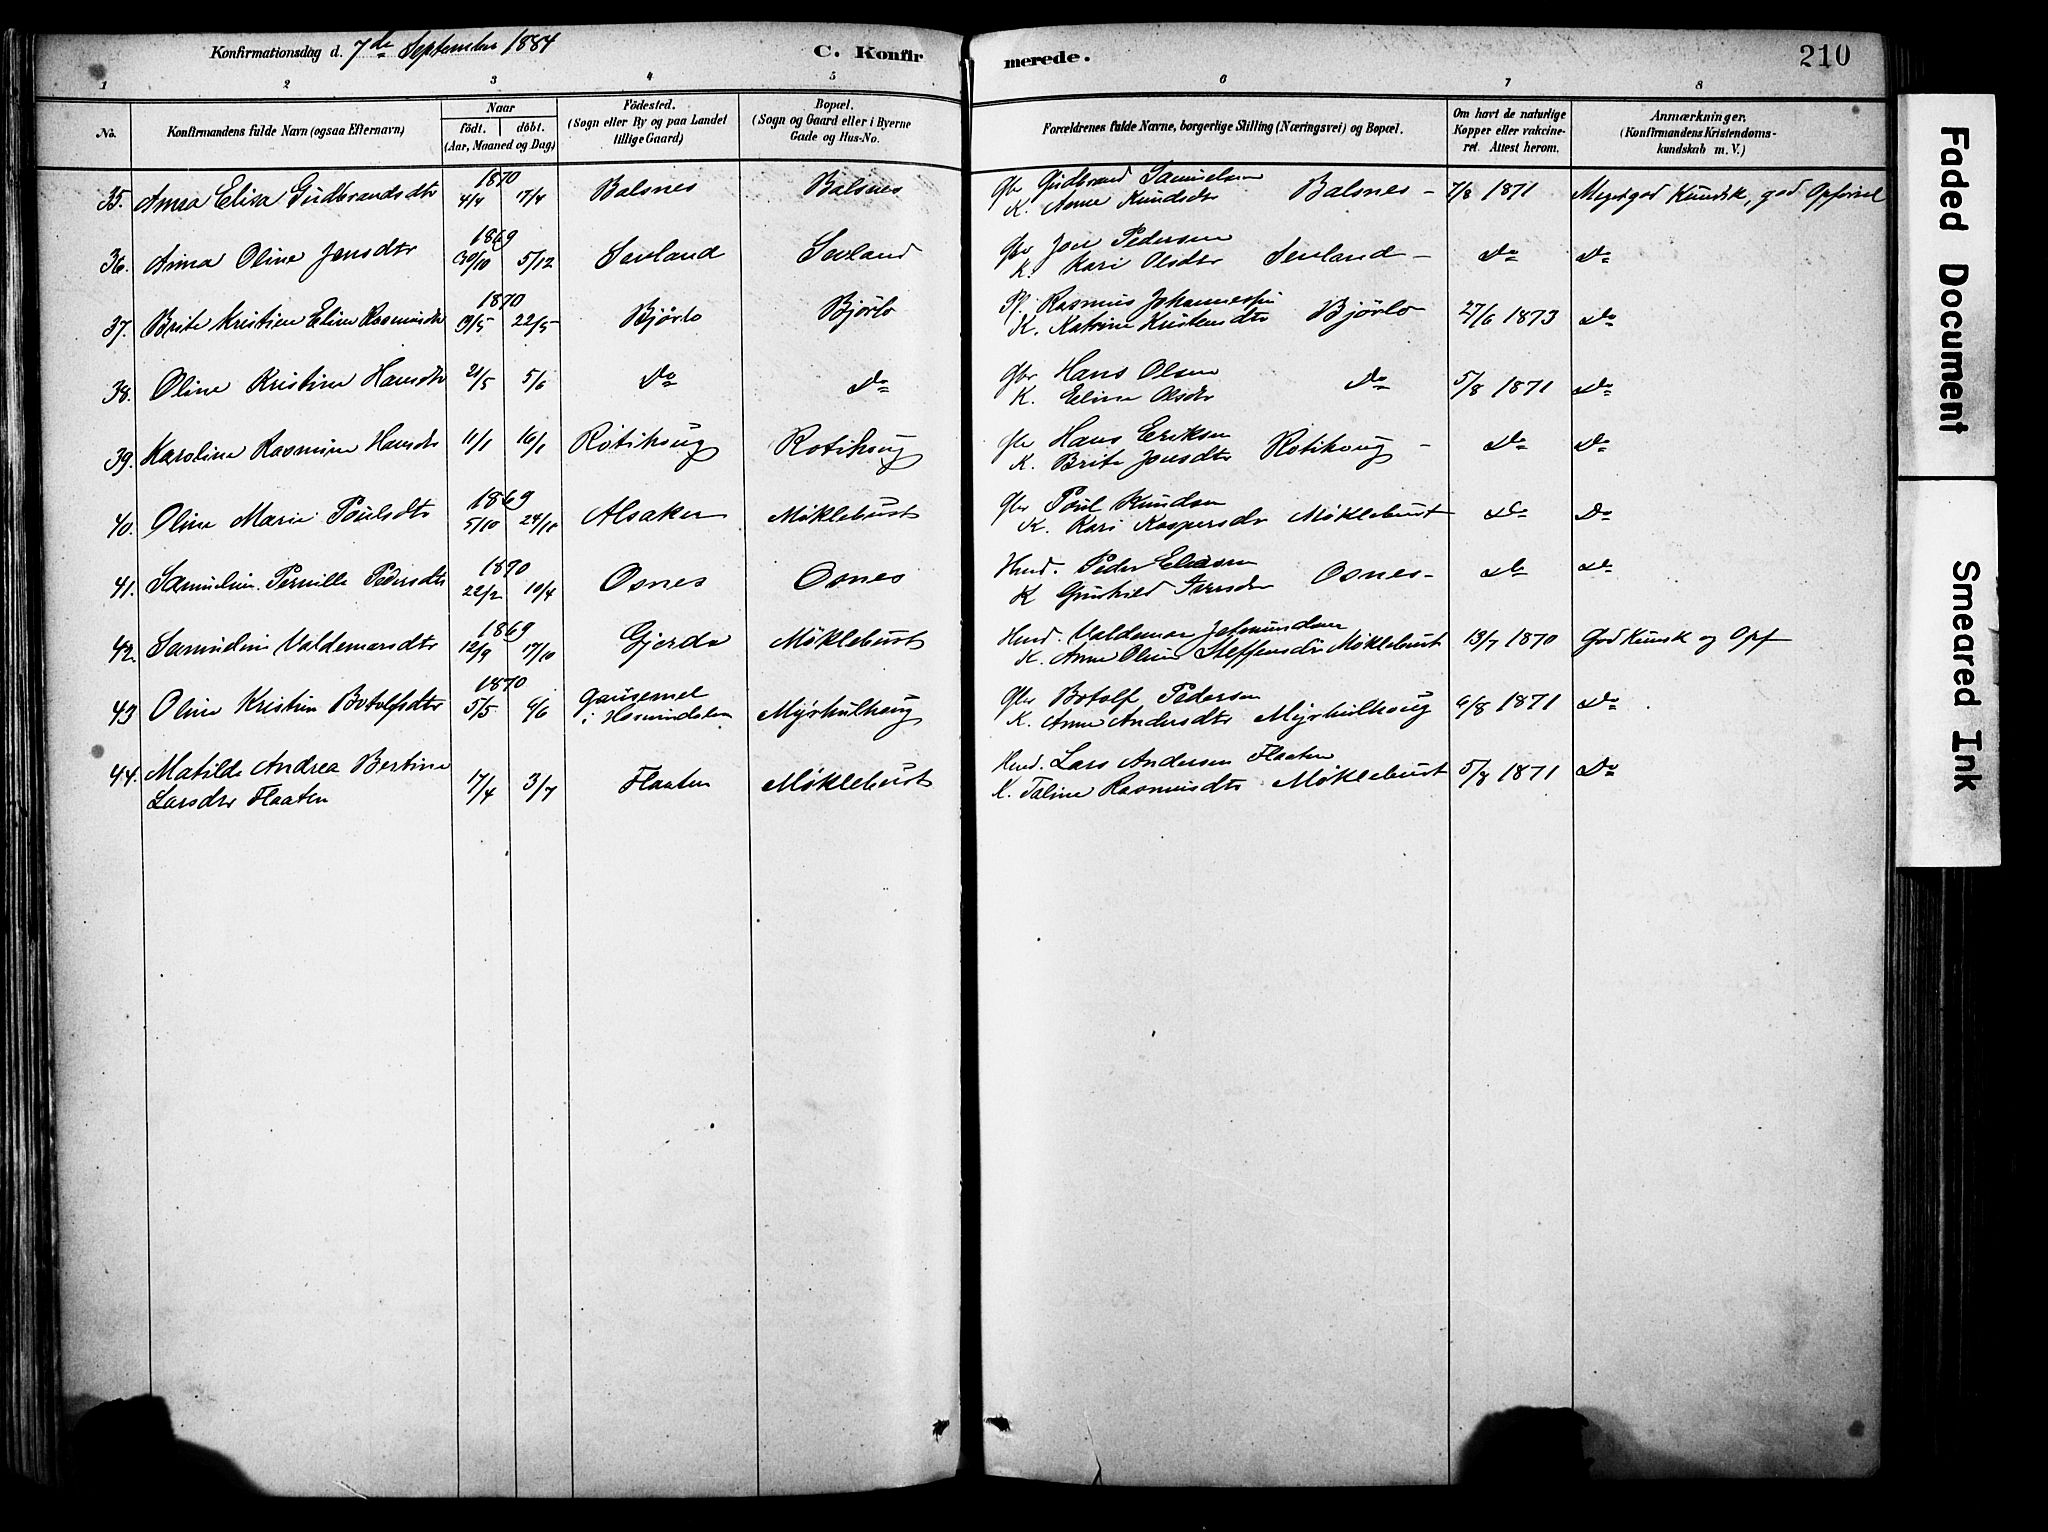 Konfirmationsdag d. 7de September 1884 C. Konfirmerede. 210
1 2 3 4 5 6 7 8
No. Konfirmandens fulde Navn (ogsaa Efternavn) Naar födt. döbt. (Aar, Maaned og Dag) Födested. (Sogn eller By og paa Landet tillige Gaard) Bopæl. (Sogn og Gaard eller i Byerne Gade og Hus-No. Forældrenes fulde Navne, borgerlige Stilling (Næringsvei) og Bopæl. Om havt de naturlige Kopper eller vakcineret. Attest herom. Anmærkninger. (Konfirmandens Kristendomskundskab m. V.)
35. Anna Elisa Gudbrandsdtr 1870 4/4 17/4 Balsnes Balsnes Gbr Gudbrand Samuelsen K. Anne Knudsdtr Balsnes - 7/8 1871 Meget god Kundsk, god Opførsel
36. Anna Oline Jonsdtr 1869 30/10 5/12 Sevland Sevland Gbr Jon Pedersen K. Kari Olsdtr Sevland - Do Do
37. Brite Kristine Eline Rasmusdtr 1870 9/5 22/5 Bjórlo Bjórlo Pl. Rasmus Johannessen K. Katrine Kristensdtr Bjórlo 27/6 1873 Do
38. Oline Kristine Hansdtr 21/5 5/6 Do Do Gbr Hans Olsen K. Eline Olsdtr Do 5/8 1871 Do
39. Karoline Rasmine Hansdtr 11/1 16/1 Rotihoug Rotihoug Gbr Hans Eriksen K. Brite Jonsdtr Rotihoug - Do Do
40. Oline Marie Poulsdtr 1869 5/10 24/10 Alsaker Møklebust Gbr Poul Knudsen K. Kari Kaspersdtr Møklebust Do Do
41. Samueline Pernille Pedersdtr 1870 22/2 10/4 Osnes Osnes Hmd. Peder Eliasen K Gunhild Iversdtr Osnes - Do Do
42. Samueline Valdemarsdtr 1869 12/9 17/10 Gjerde Møklebust Hmd. Valdemar Jetmundsen K. Anne Oline Steffensdtr Møklebust 13/7 1870 God Kunsk og Opf
43 Oline Kristine Botolfsdtr 1870 5/5 6/6 Gausemel i Hornindalen Myrhulhoug Gbr Botolf Pedersen K. Anne Andersdtr Myrhulhoug 6/8 1871 Do
44. Matilde Andrea Bertine Larsdtr Flaaten 17/4 3/7 Flaaten Møklebust Hmd. Lars Andersen Flaaten K. Taline Rasmusdtr Møklebust 5/8 1871 Do
Faded Document
Smeared Ink